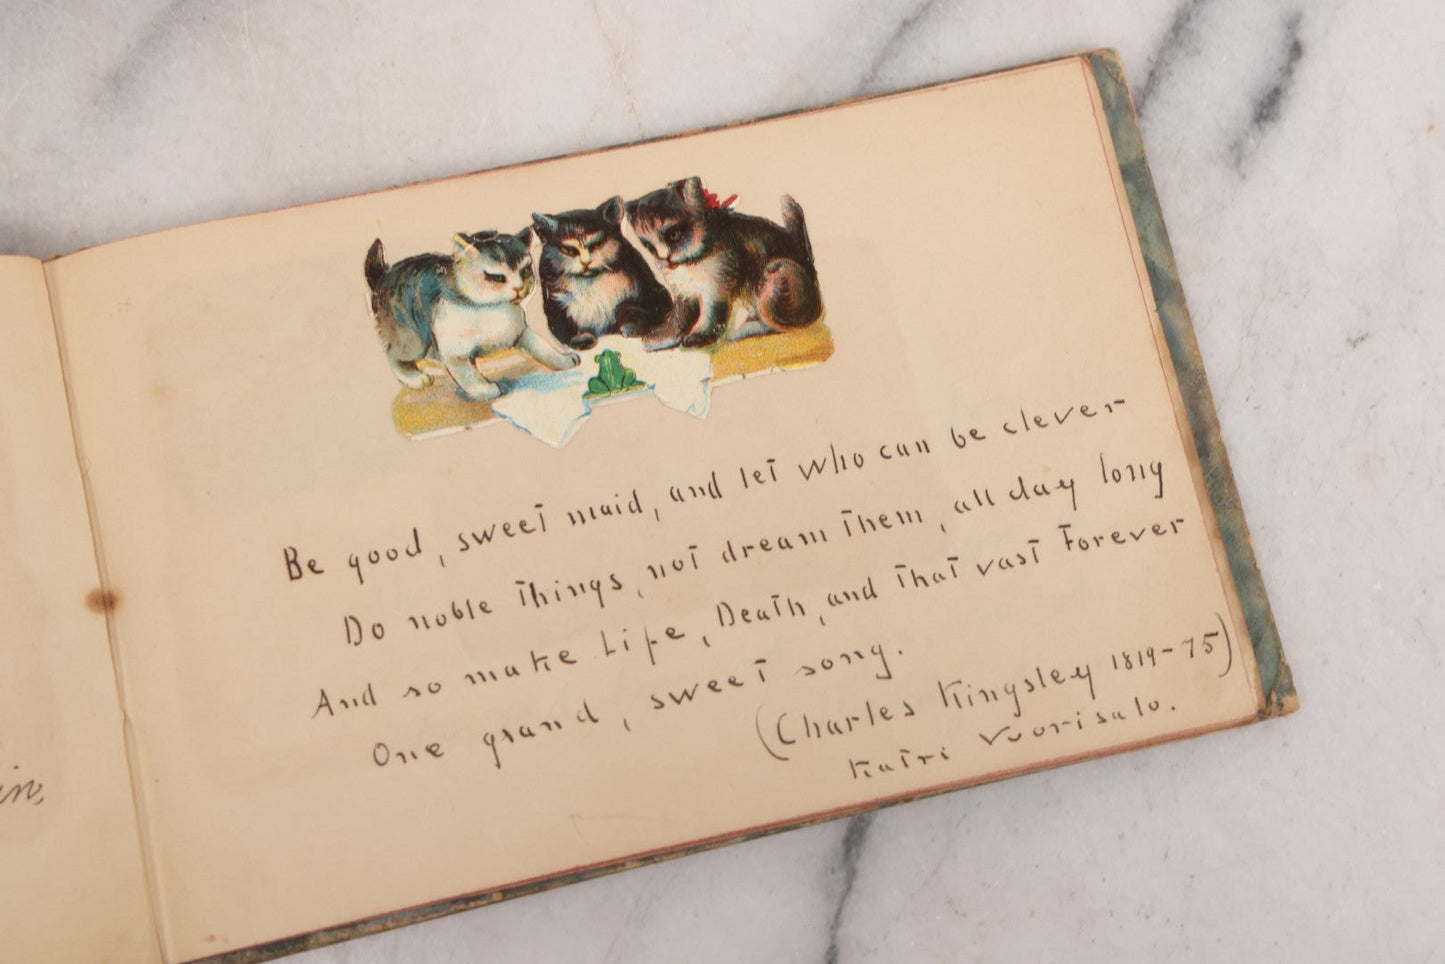 in,
Be good, sweet maid, and let who can be clever
Do noble things, not dream them, all day long
And so make Life, Death, and that vast Forever
One grand, sweet song.
(Charles Kingsley 1819-75)
Katri Vuorisalo.